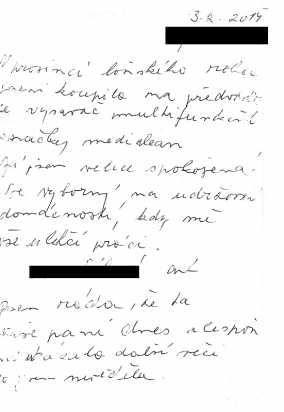 3.2. 2014
prosinci loňského roku
jsem koupila na předvád
se vysavač multifunkč
značky mediclean
jsem velice spokojená.
Je výborný na udržování
domácnosti, kdy mě
vše ulehčí práci.
jsem ráda, že ta
vaše paní dnes alespoň
mi ukázala další věci
co jsem nevěděla.